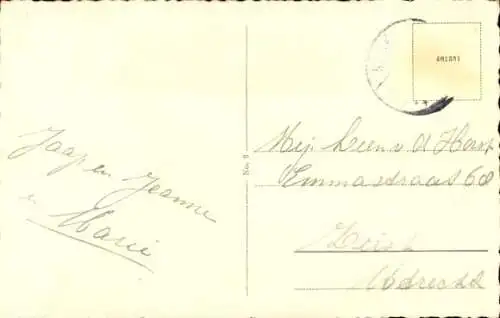 Jaap en Jeanne
en Marie
No. 9
Mej. Leen v. d. Horst
Emmastraat 60
Zeist
Utrecht